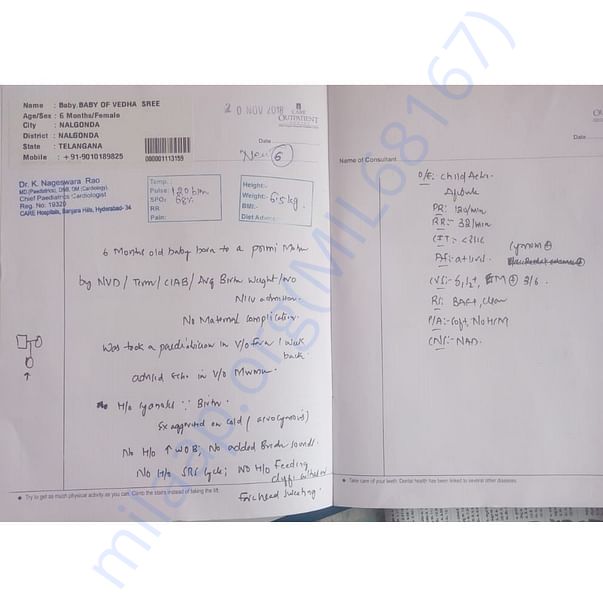 Name : Baby.BABY OF VEDHA SREE
Age/Sex : 6 Months/Female
City : NALGONDA
District : NALGONDA
State : TELANGANA
Mobile : +91-9010189825
000001113159
20 NOV 2018
CARE
OUTPATIENT
Date
New 6
Dr. K. Nageswara Rao
MD (Paediatrics), DNB, DM (Cardiology)
Chief Paediatric Cardiologist
Reg. No: 19320
CARE Hospitals, Banjara Hills, Hyderabad-34
Temp.:
Pulse: 120 b/m
SPO2 68%
RR
Pain:
Height:-
Weight:- 6.5 kg.
BMI:-
Diet Advice:
6 Months old baby born to a primi
by NVD / Term / CIAB / Avg Birth Weight / no
NIU admission.
No Maternal complication.
Was took a paediatician in v/o fever 1 week
back.
advised Echo in v/o Murmur
H/o Cyanosis ∵ Birth.
Exaggerated on cold / acrocyanosis)
No H/o ↑ WOB; No added Breath sounds.
No H/o SRS cycle; NO H/o Feeding
Forehead Sweating.
Try to get as much physical activity as you can. Climb the stairs instead of taking the lift.
Date
Name of Consultant
O/E: Child Active
Afebrile
PR: 120/min
RR: 38/min
CFT:- <3sec
Cyanosis +
CVS:- S1S2+, ESM + 3/6
RS: BAE+, Clear
P/A:- Soft, No HSM
CNS:- NAD.
Take care of your teeth. Dental health has been linked to several other diseases.
milaap.org(MIL68167)